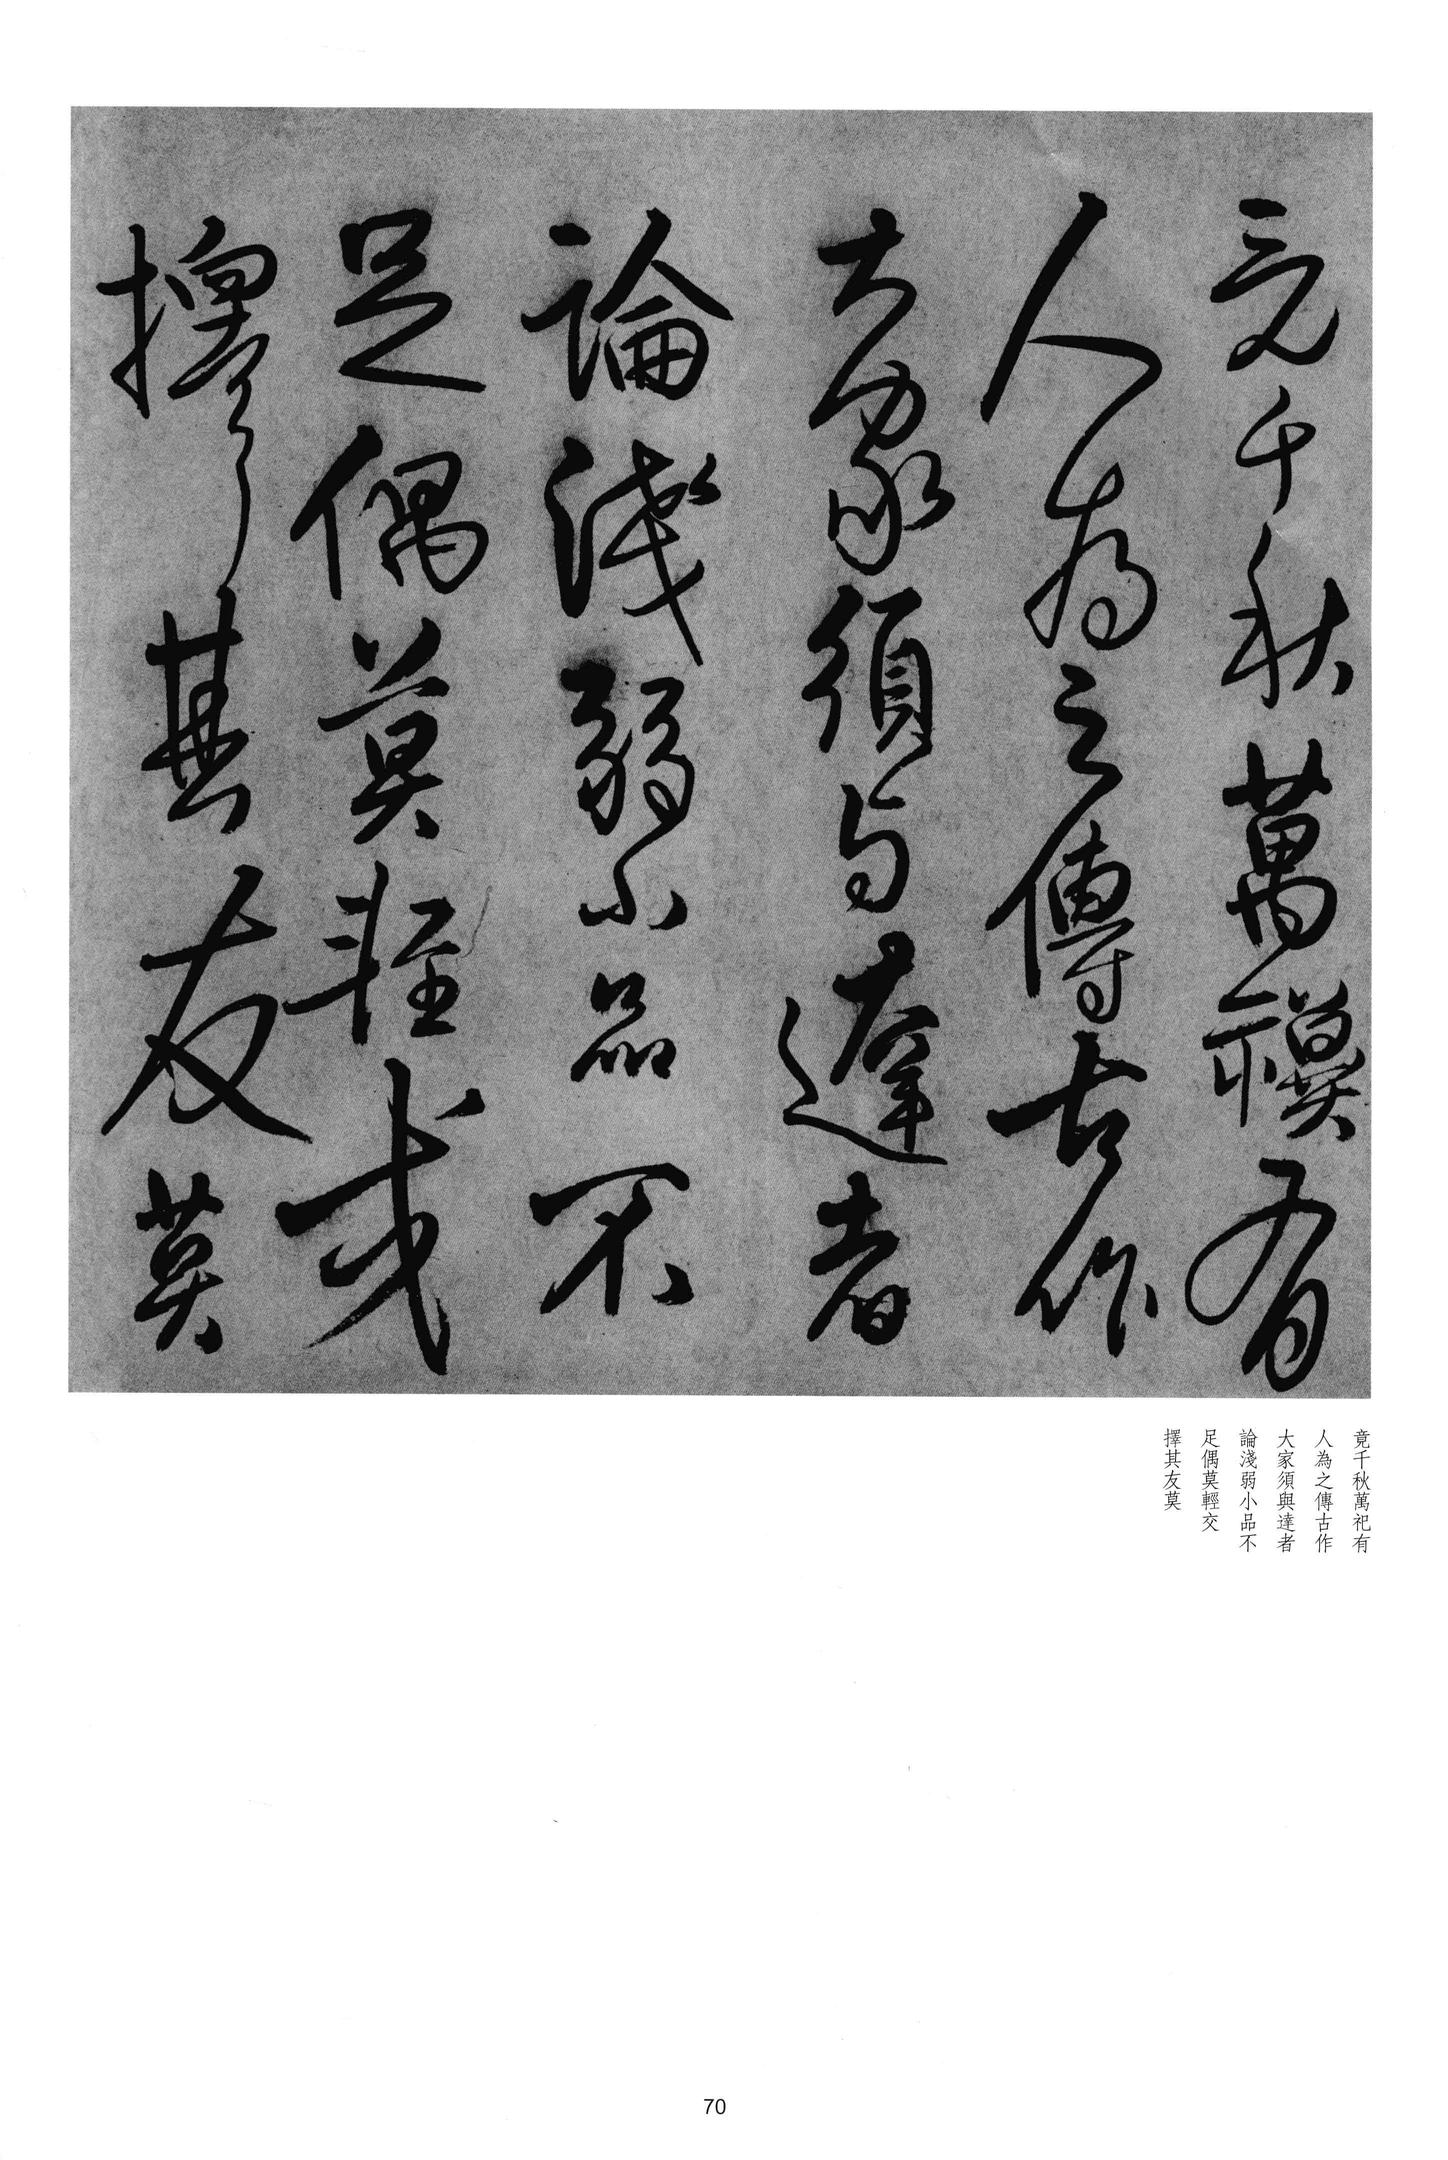 竟千秋萬禩有
人為之傳古作
大家須与達者
論淺弱小品不
足偶莫輕
擇其友莫
竟千秋萬祀有
人為之傳古作
大家須與達者
論淺弱小品不
足偶莫輕交
擇其友莫
70